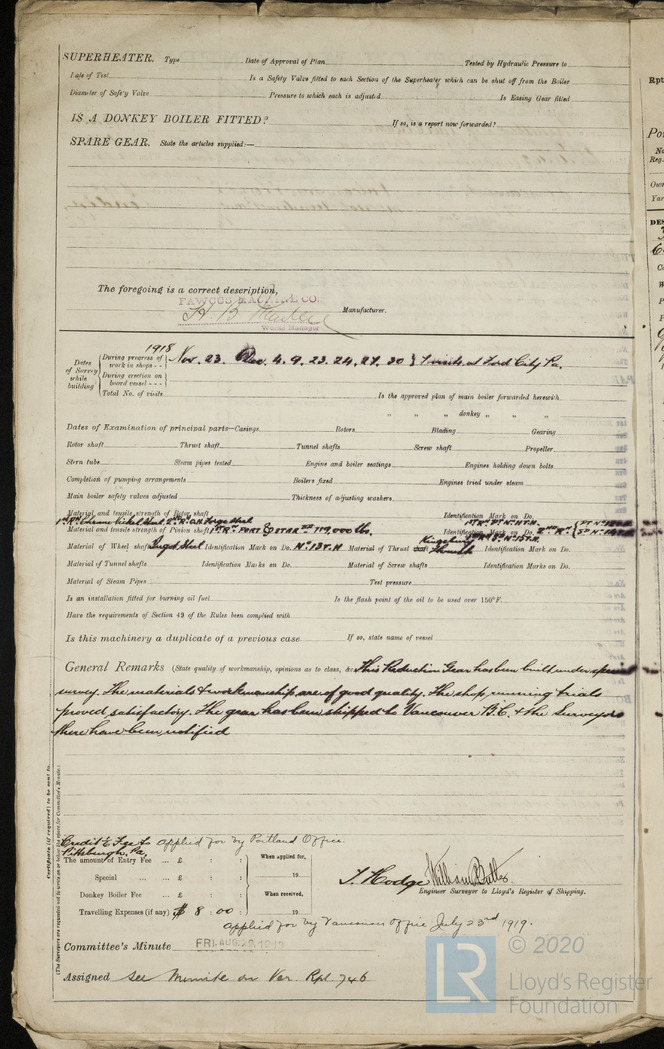 SUPERHEATER. Type Date of Approval of Plan Tested by Hydraulic Pressure to
Date of Test Is a Safety Valve fitted to each Section of the Superheater which can be shut off from the Boiler
Diameter of Safety Valve Pressure to which each is adjusted Is Easing Gear fitted
IS A DONKEY BOILER FITTED? If so, is a report now forwarded?
SPARE GEAR. State the articles supplied:—
The foregoing is a correct description,
FAWCUS MACHINE CO.
Manufacturer.
Works Manager
1918
Dates of Survey while building
During progress of work in shops - - Nov. 23. Dec. 4. 9. 23. 24. 27. 30 } 7 visits at Ford City Pa.
During erection on board vessel - - -
Total No. of visits Is the approved plan of main boiler forwarded herewith
" " " donkey " " "
Dates of Examination of principal parts—Casings Rotors Blading Gearing
Rotor shaft Thrust shaft Tunnel shafts Screw shaft Propeller
Stern tube Steam pipes tested Engine and boiler seatings Engines holding down bolts
Completion of pumping arrangements Boilers fixed Engines tried under steam
Main boiler safety valves adjusted Thickness of adjusting washers
Material and tensile strength of Rotor shaft Identification Mark on Do.
1st Rn. Chrome Nickel Steel. 2nd Rn. O.H. Forge Steel
Material and tensile strength of Pinion shaft 119,000 lbs. Identification Mark on Do. 2nd Rn.
Material of Wheel shaft Forged Steel Identification Mark on Do. No 13 T.H Material of Thrust shaft Kingsbury Thrust Identification Mark on Do.
Material of Tunnel shafts Identification Marks on Do. Material of Screw shafts Identification Marks on Do.
Material of Steam Pipes Test pressure
Is an installation fitted for burning oil fuel Is the flash point of the oil to be used over 150°F.
Have the requirements of Section 49 of the Rules been complied with
Is this machinery a duplicate of a previous case If so, state name of vessel
General Remarks (State quality of workmanship, opinions as to class, &c. This Reduction Gear has been built under special
survey. The materials & workmanship are of good quality. The shop running trials
proved satisfactory. The gear has been shipped to Vancouver B.C. & the Surveyors
there have been notified
Certificate (if required) to be sent to
(The Surveyors are requested not to write on or below the space for Committee's Minute.)
Credit E. Fee to applied for by Portland Office.
Pittsburgh, Pa.
The amount of Entry Fee ... £ : : When applied for,
Special ... ... £ : : 19
Donkey Boiler Fee ... £ : : When received,
Travelling Expenses (if any) $ 8 : 00 : 19
T. Hodge William Butler
Engineer Surveyor to Lloyd's Register of Shipping.
applied for by Vancouver Office July 23rd 1919.
Committee's Minute FRI. AUG. 29. 1919
Assigned see Minute on Ver. Rpt 746
© 2020
LR
Lloyd's Register
Foundation
Rpt